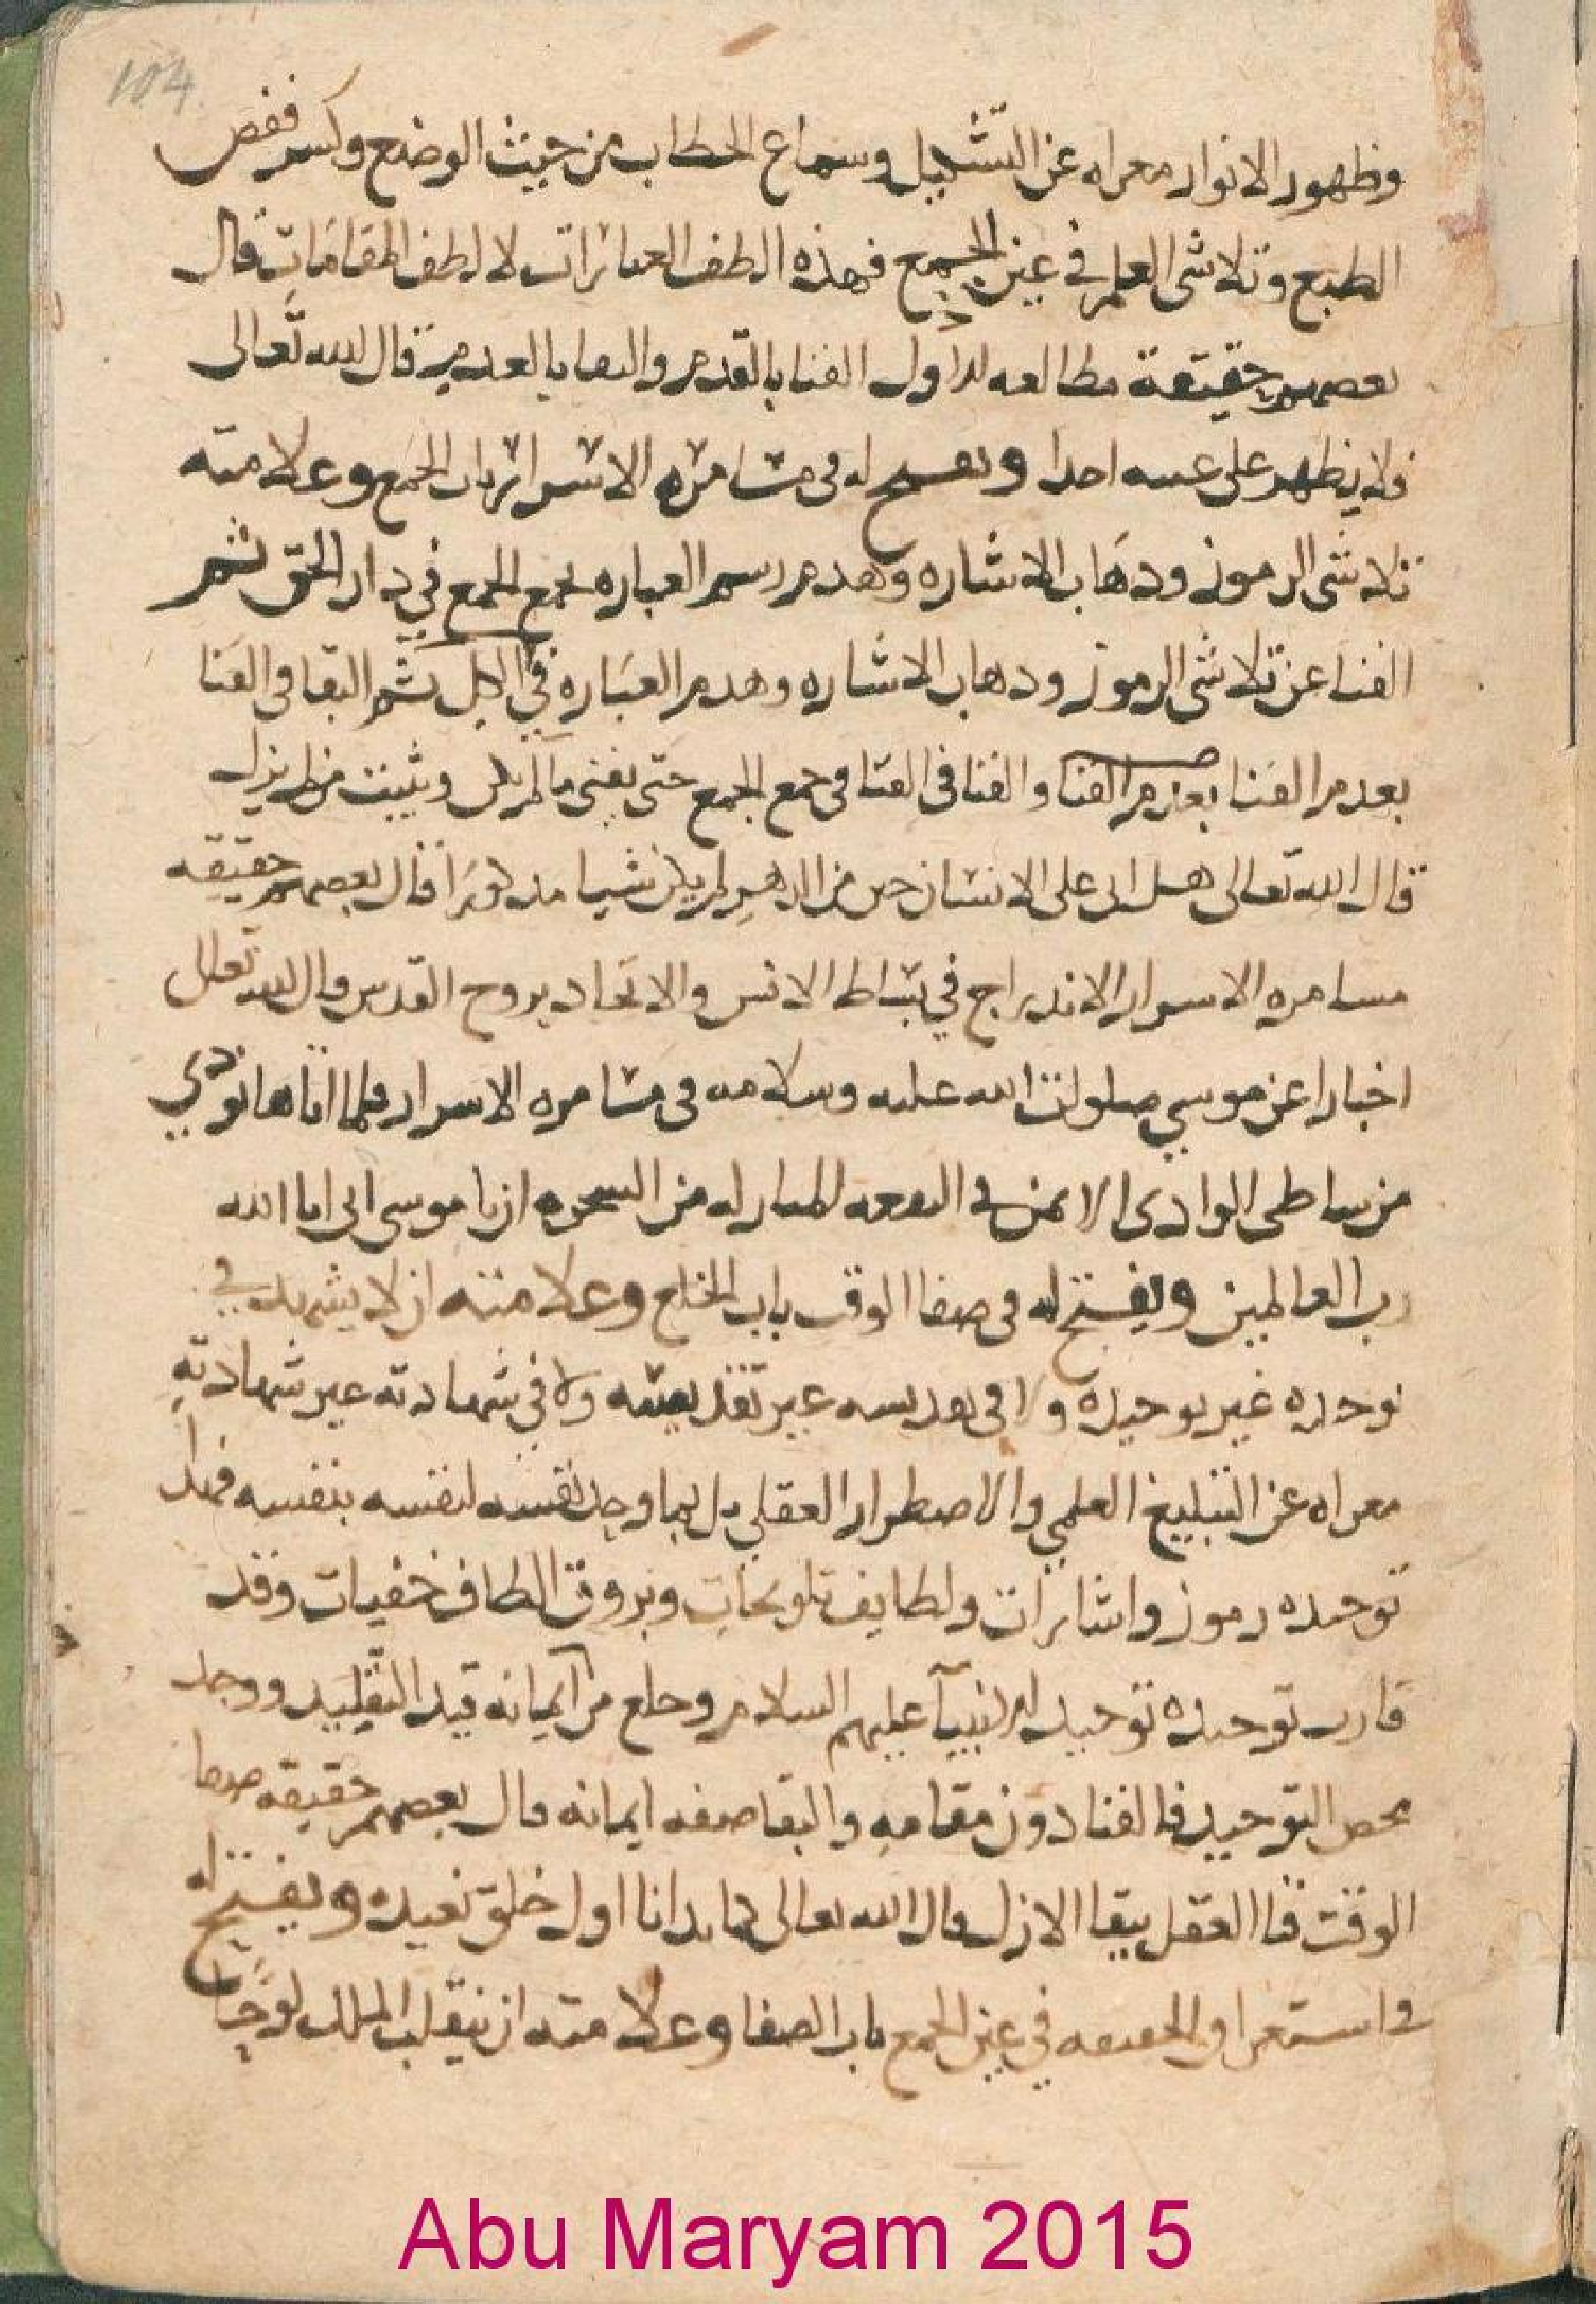 104
وظهور الانوار معراه عن التشكيل وسماع الخطاب من حيث الوضع وكسر قفص
الطبع وتلاشى العلم في عين الجمع فهذه الطف العبارات لا لطف المقامات قال
بعضهم حقيقة مطالعه الاول الفنا بالقدم والبقا بالعدم قال الله تعالى
فلا يظهر على غيبه احدا ويفتح له في مسامره الاسرار باب الجمع وعلامته
تلاشى الرموز وذهاب الاشاره وهدم رسم العباره بجمع الجمع في دار الحق ثم
الفنا عن تلاشى الرموز وذهاب الاشاره وهدم العباره في الكل ثم البقا في الفنا
بعدم الفنا بعدم الفنا والفنا في الفنا في جمع الجمع حتى يفنى ما لم يكن ويثبت من لم يزل
قال الله تعالى هل اتى على الانسان حين من الدهر لم يكن شيا مذكورا قال بعضهم حقيقه
مسامره الاسرار الاندراج في بساط الانس والاتحاد بروح القدس قال الله تعالى
اخبارا عن موسى صلوات الله عليه وسلامه في مسامره الاسرار فلما اتاها نودي
من شاطى الوادى الايمن في البقعه المباركه من الشجره ان يا موسى انى انا الله
رب العالمين ويفتح له في صفا الوقت باب الخلع وعلامته ان لا يشهد في
توحيده غير توحيده ولا في تقديسه غير تقديسه ولا في شهادته غير شهادته
معراه عن التبليغ العلمي والاضطرار العقلي بل بما وجد نفسه لنفسه بنفسه فهذا
توحيده رموز واشارات ولطايف تلويحات وبروق الطاف خفيات وقد
قارب توحيده توحيد الانبيآ عليهم السلام وخلع من ايمانه قيد التقليد ووجد
محض التوحيد فالفنا دون مقامه والبقا صفه ايمانه قال بعضهم حقيقه صفا
الوقت فنا العقل ببقا الازل قال الله تعالى كما بدانا اول خلق نعيده ويفتح له
في استغراق الحقيقه في عين الجمع باب الصفا وعلامته ان ينقلب الملك لوحا
Abu Maryam 2015